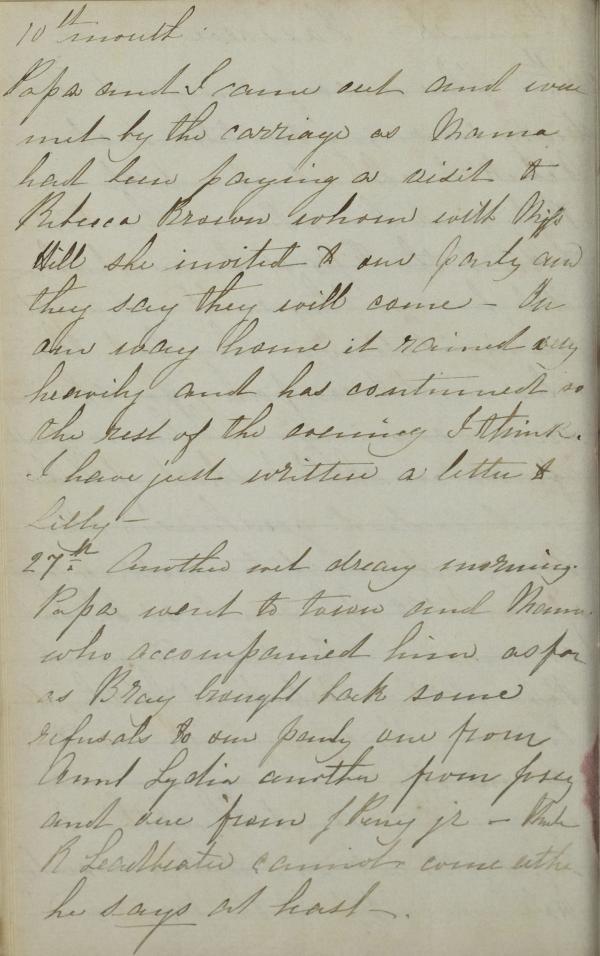 10th month
Papa and I came out and were
met by the carriage as Mama
had been paying a visit to
Rebecca Brown whom with Miss
Hill she invited to our party and
they say they will come – On
our way home it rained very
heavily and has continued so
the rest of the evening I think.
I have just written a letter to
Lilly –
27th Another wet dreary morning.
Papa went to town and Mama
who accompanied him as far
as Bray brought back some
refusals to our party one from
Aunt Lydia another from
and one from J Perry jr –
R Leadbeater cannot come either
he says at least –.